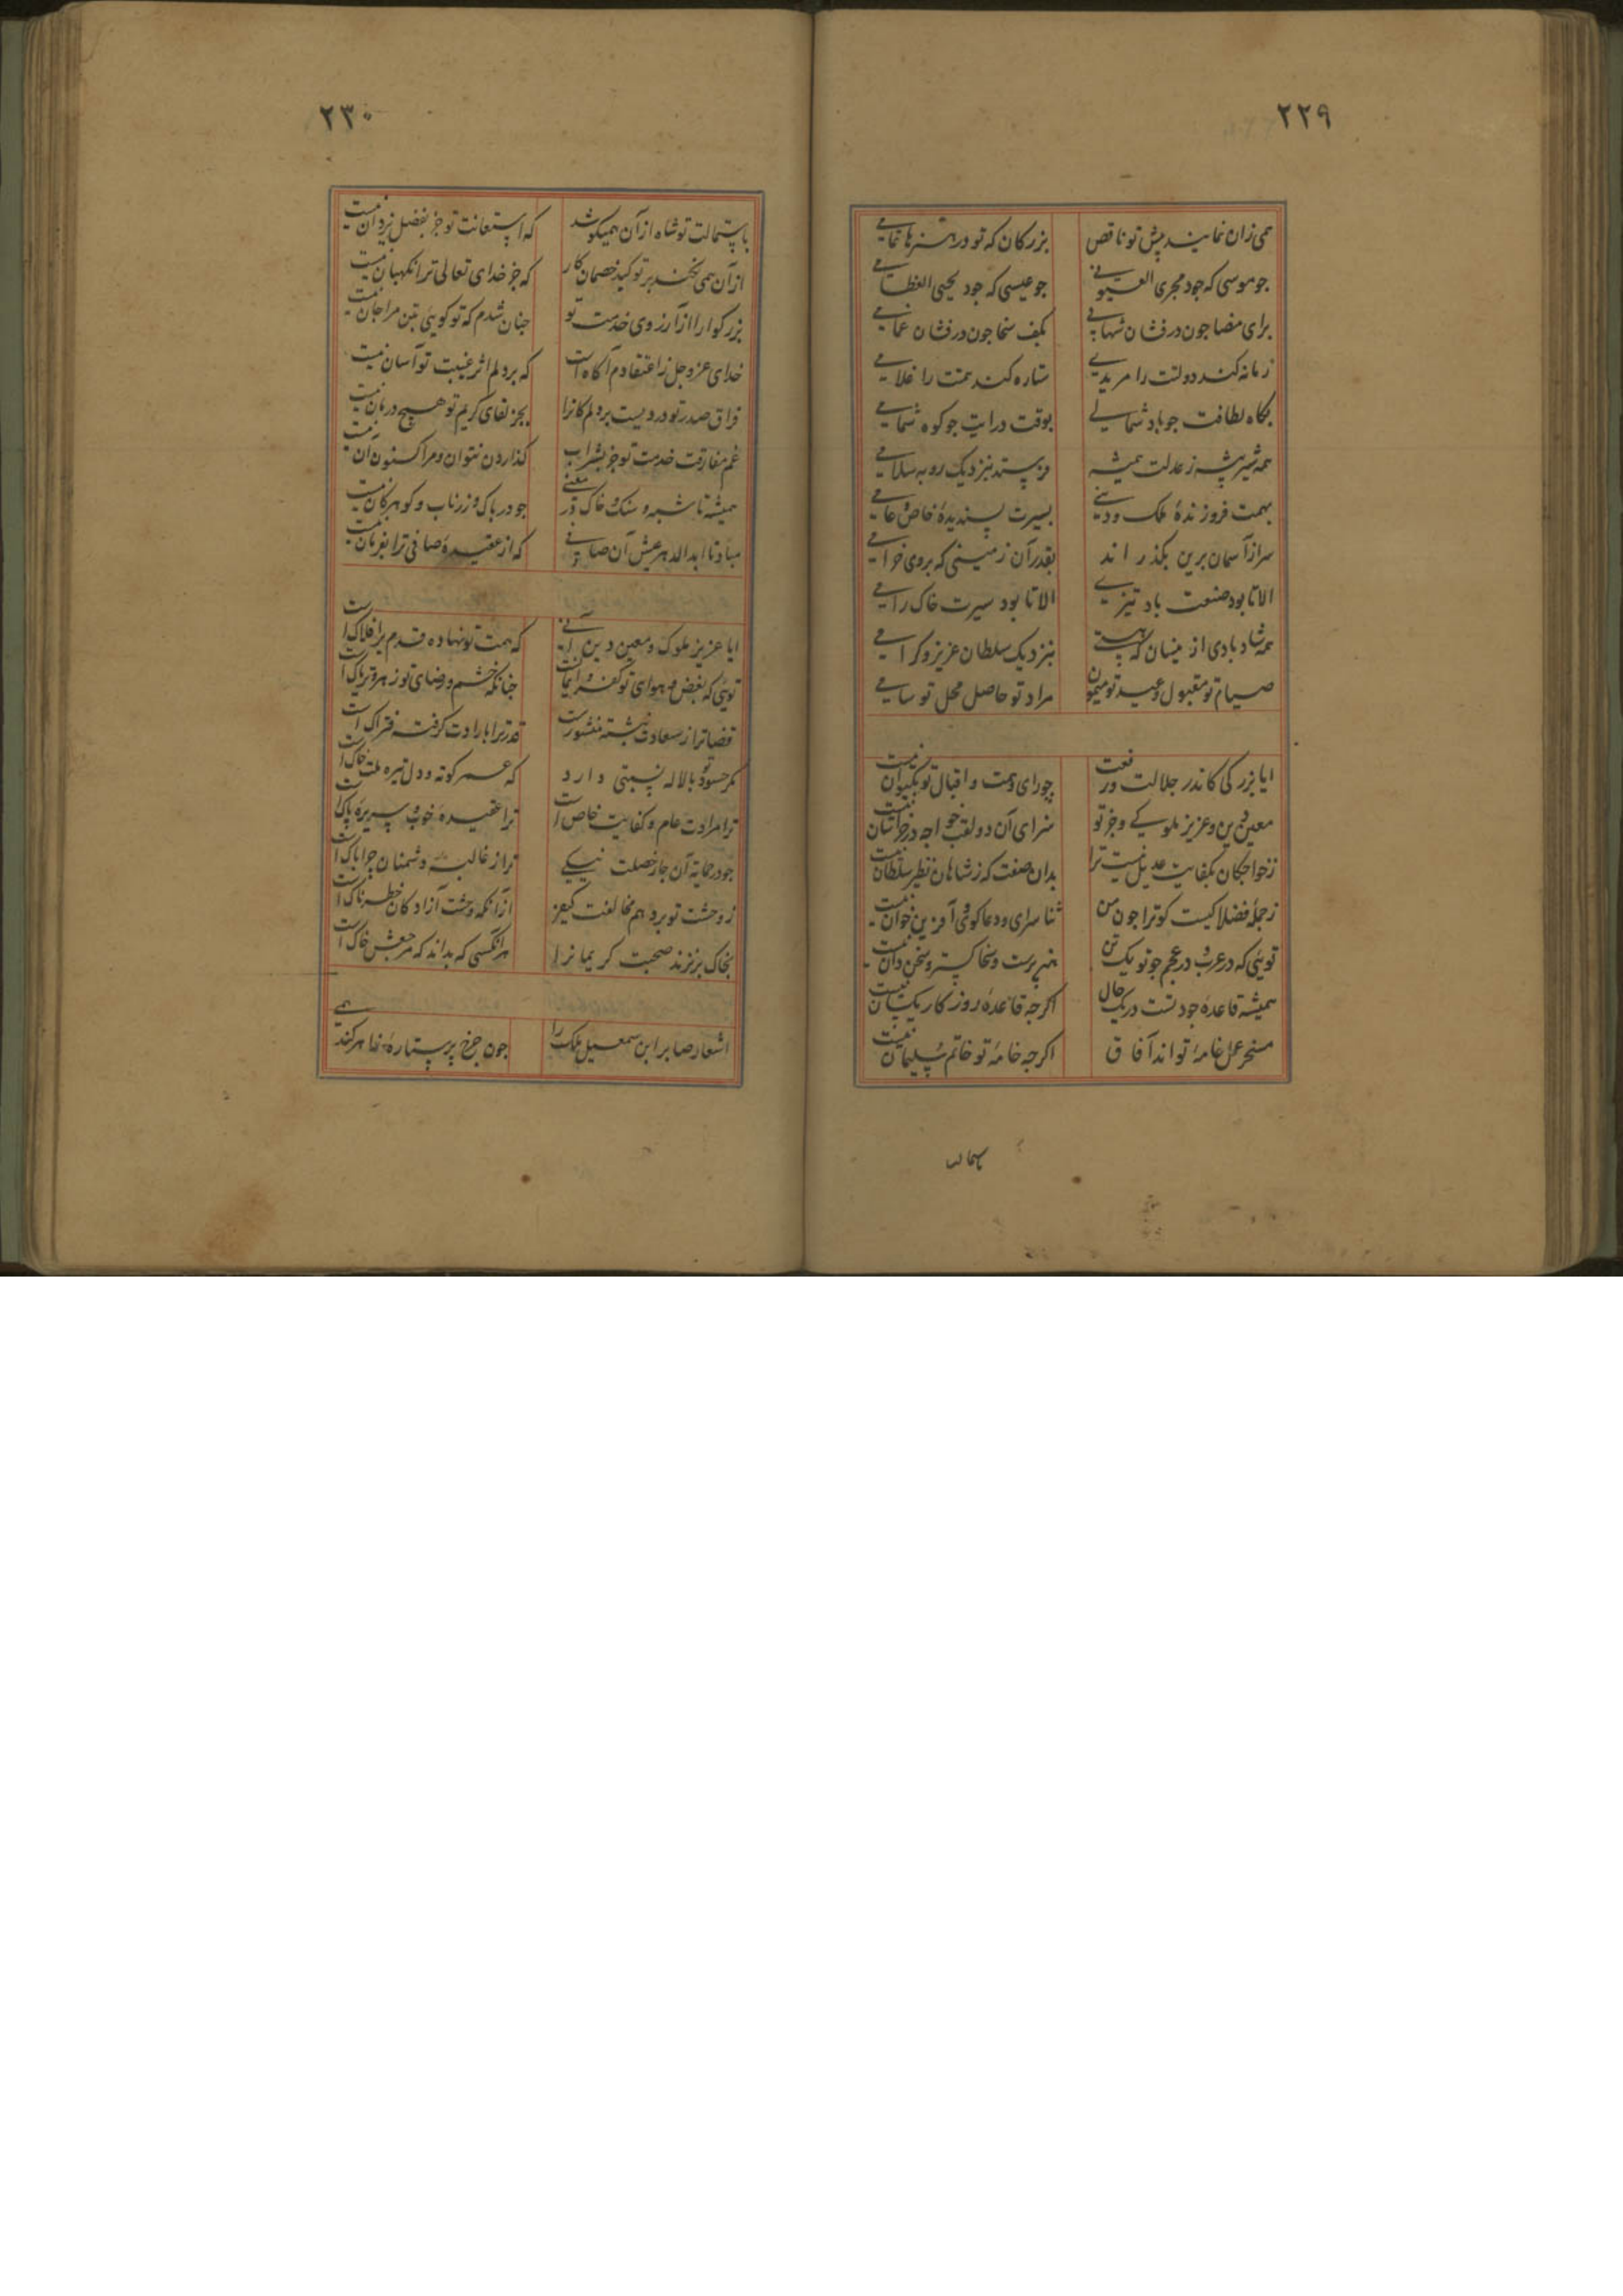 ۲۲۹
همی زان نمایند پیش تو ناقص بزرکان که تو در هنرها تمامی
جو موسی که جود مجری العیونی جو عیسی که جود یحیی العظامی
برای مضا جون درفشان شهابی بکف سخا جون درفشان غمامی
زمانه کند دولتت را مریدی ستاره کند همتت را غلامی
بکاه لطافت جو باد شمالی بوقت درایت جو کوه شمامی
همه شیر بیشه ز عدلت همیشه فرستد نزدیک روبه سلامی
بهمت فروزندهٔ ملک و دینی بسیرت پسندیدهٔ خاص و عامی
سر از آسمان برین بکذراند بقدر آن زمینی که بروی خرامی
الا تا بود صنعت باد تیزی الا تا بود سیرت خاک رامی
همه شاد بادی از مینسان که هستی بنزدیک سلطان عزیز و کرامی
صیام تو مقبول و عید تو میمون مراد تو حاصل محل تو سامی
ایا بزرکی کاندر جلالت و رفعت چو رای و همت و اقبال تو بکیوان نیست
معین دین و عزیز ملوکی و جز تو سزای آن دو لقب خواجه در خراسان نیست
زخواجکان بکفایت عدیل نیست ترا بدان صفت که ز شاهان نظیر سلطان نیست
ز جملهٔ فضلا کیست کو ترا جون من ثنا سرای و دعا کوی و آفرین خوان نیست
تویی که در عرب و در عجم جو تو یک تن هنر پرست و سخا کستر و سخن دان نیست
همیشه قاعدهٔ جود تست در یک حال اکرجه قاعدهٔ روزکار یکسان نیست
مسخر عمل خامهٔ تو اند آفاق اکرجه خامهٔ تو خاتم سلیمان نیست
باستمالت
۲۳۰
باستمالت تو شاه از آن همیکوشد که استعانت تو جز بفضل یزدان نیست
از آن همی نکند بر تو کید خصمان کار که جز خدای تعالی ترا نکهبان نیست
بزرکوارا از آرزوی خدمت تو جنان شدم که تو کویی بتن مرا جان نیست
خدای عز و جل ز اعتقادم آکاهست که بر دلم اثر غیبت تو آسان نیست
فراق صدر تو دردیست بر دلم کانرا بجز لقای کریم تو هیچ درمان نیست
غم مفارقت خدمت تو جز بشراب کذاردن نتوان و مرا کنون آن نیست
همیشه تا شبه و سنک و خاک در معنی جو در پاک و زر ناب و کوهر کان نیست
مباد تا ابد الدهر عیش آن صافی که از عقیدهٔ صافی ترا بفرمان نیست
ایا عزیز ملوک و معین دین آنی که همت تو نهاده قدم بر افلاک است
تویی که بغض و هوای تو کفر و ایمانست جنانکه خشم و رضای تو زهر و تریاک است
قضا ترا ز سعادت نبشته منشورست قدر ترا بارادت کرفته فتراک است
مکر حسود تو بالاله نسبتی دارد که عمر کوته و دل تیره همت خاک است
ترا مرادت عام و کفایت خاص است ترا عقیدهٔ خوب و سریرهٔ پاک است
جو در حمایت آن جار خصلت نیکی ترا ز غالبه دشمنان چرا باک است
ز وحشت تو برد هم مخالفت کیفر از آنکه وحشت آزادکان خطرناک است
بخاک برنزند صحبت کریمانرا هر آنکسی که بداند که مرجعش خاک است
اشعار صابر ابن سمعیل ملک را جون جرخ پر ستارهٔ ظاهر کند همی